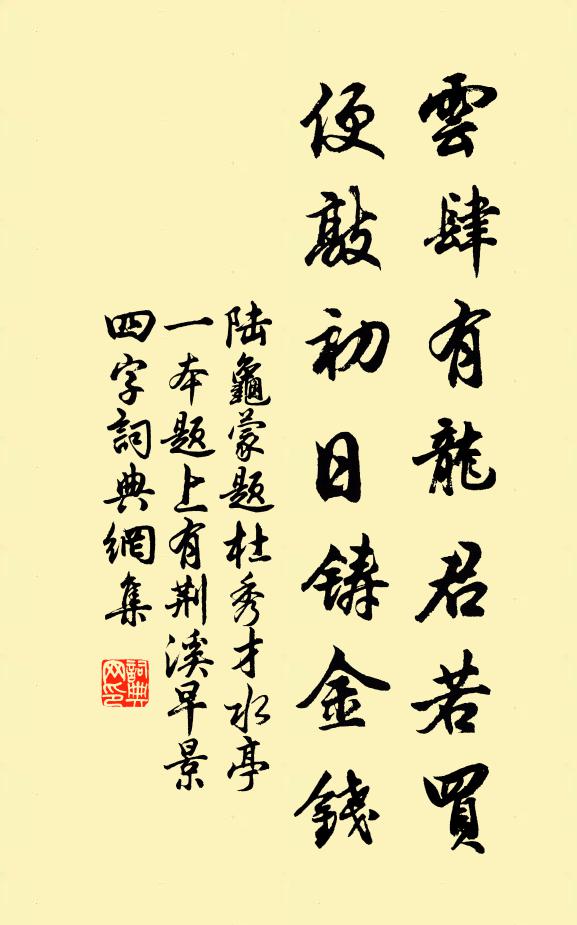 雲肆有龍君若買
便敲初日鑄金錢
陆龜蒙题杜秀才水亭
一本题上有荆溪早景
四字詞典網集
詞典
网印